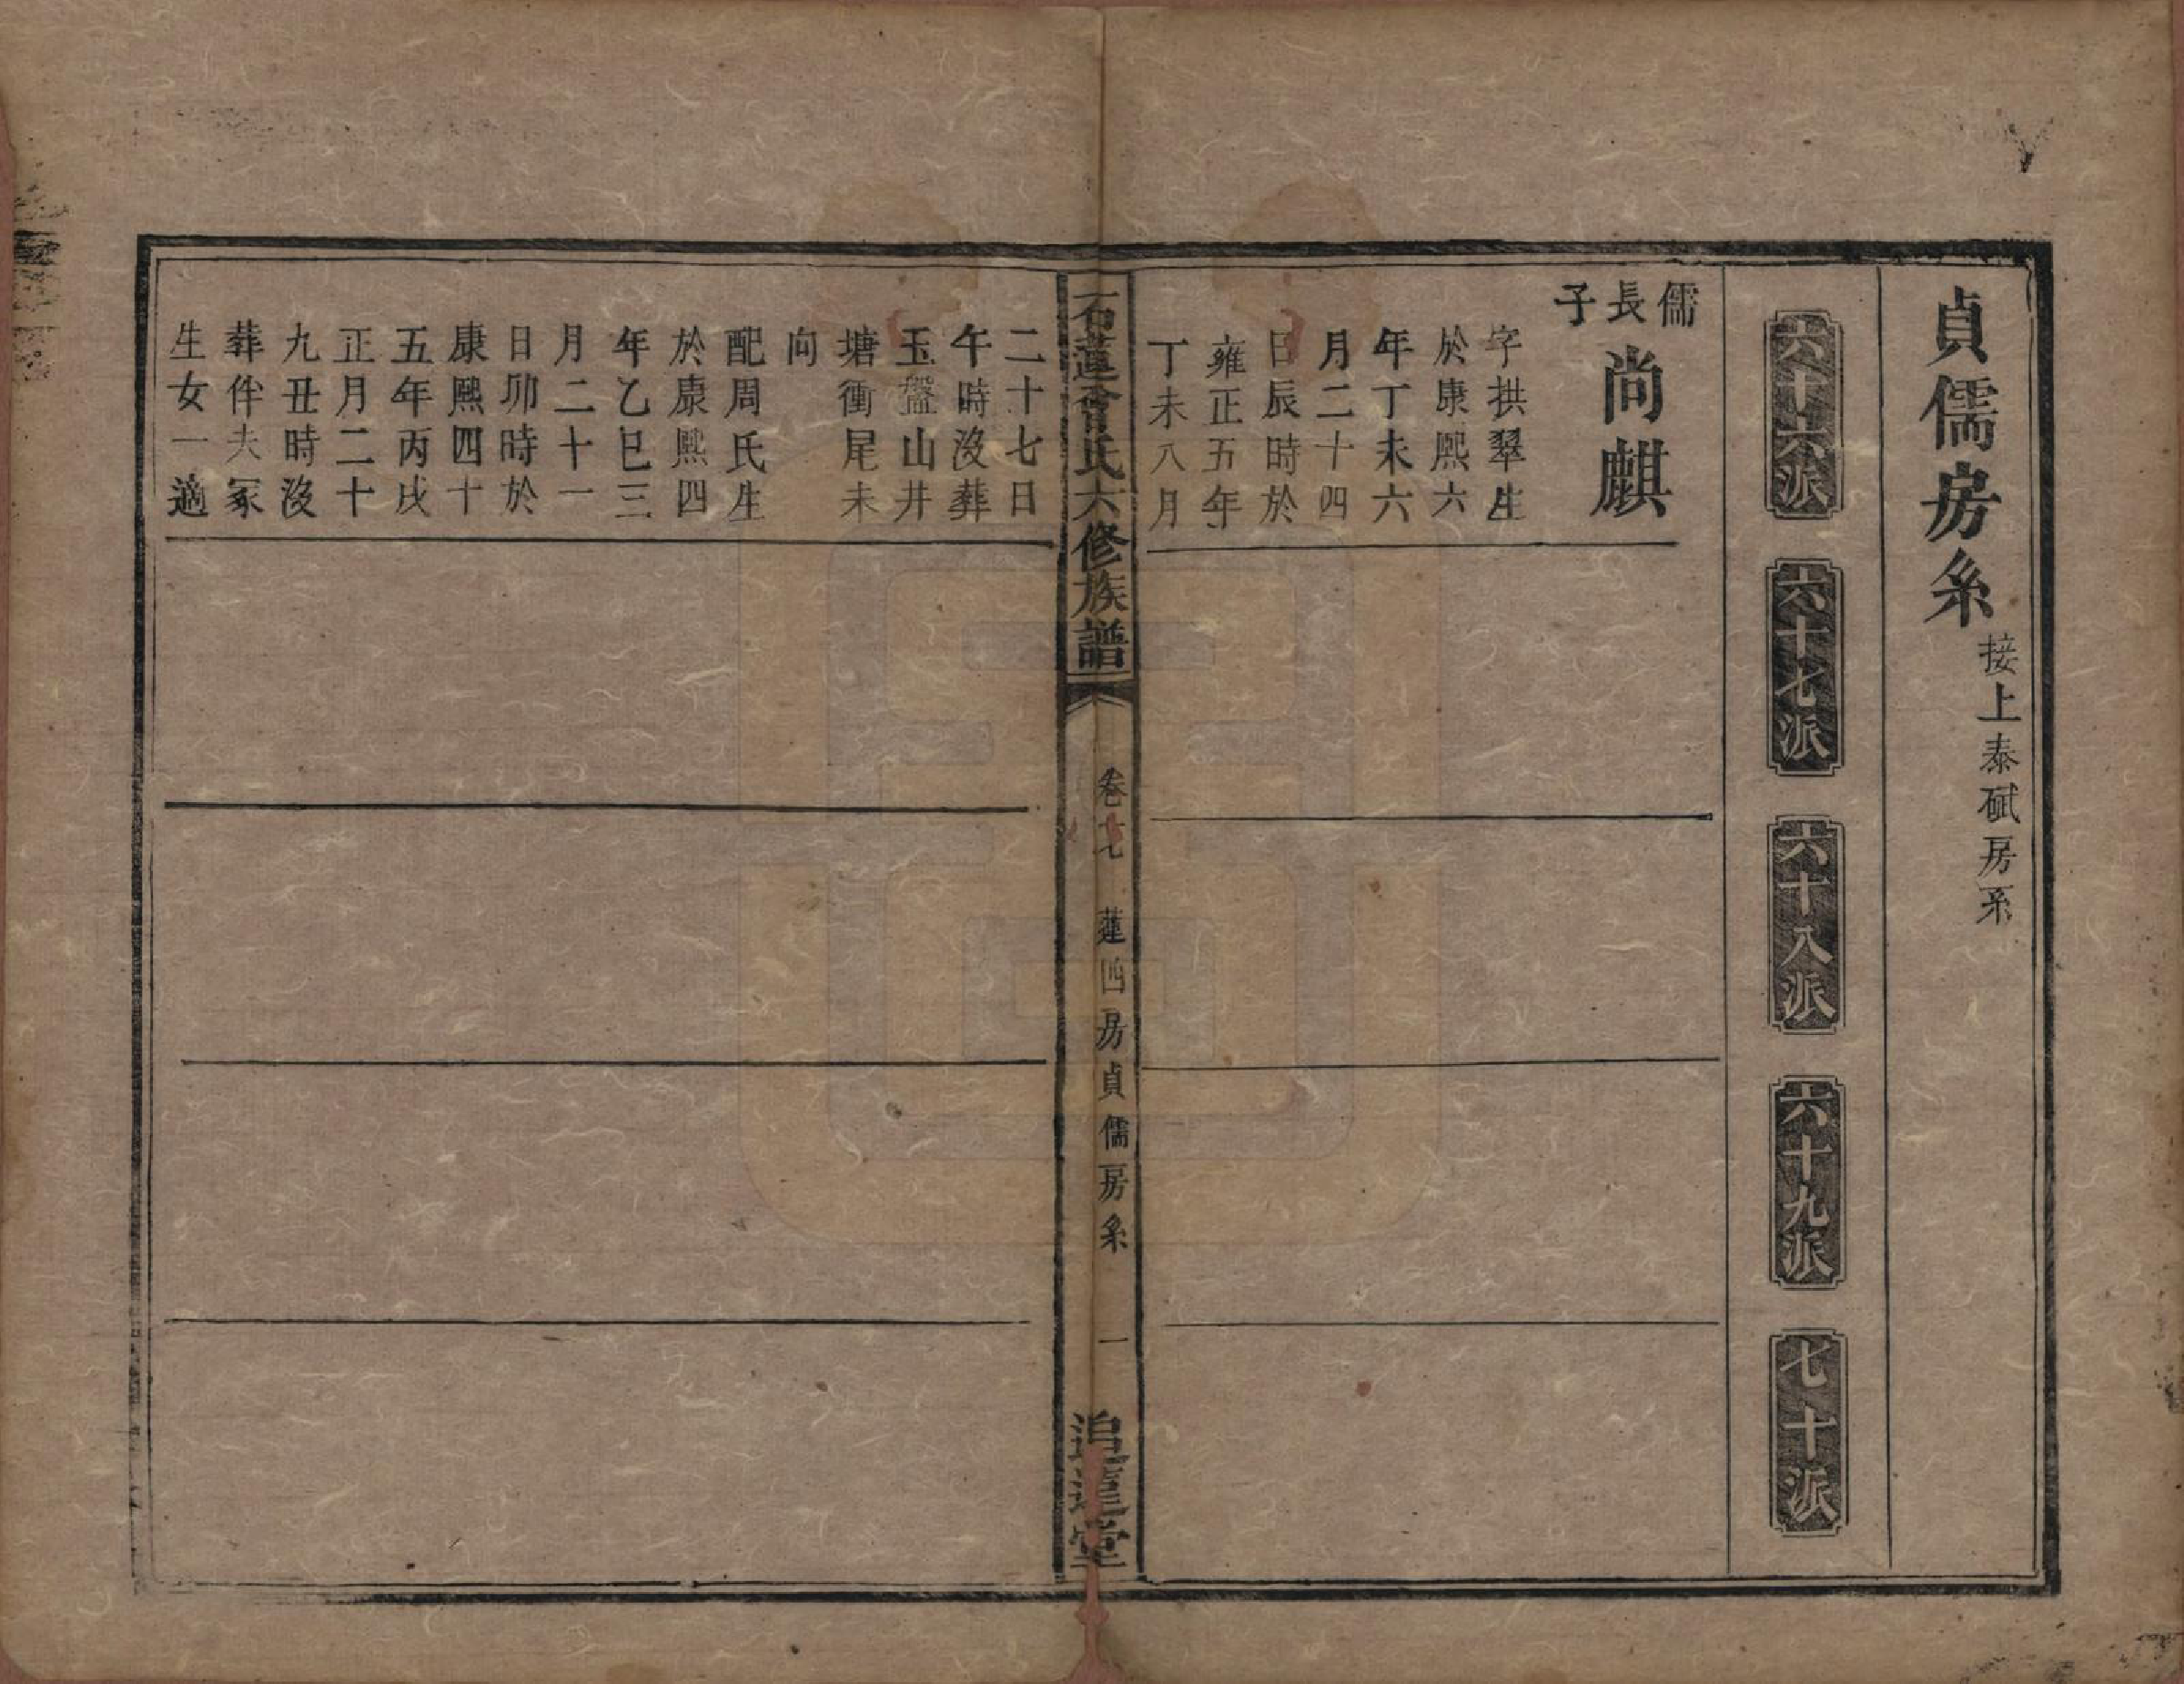 貞儒房系
接上泰碔房系
六十六派
六十七派
六十八派
六十九派
七十派
儒長子
尚麒
字拱翠生
於康熙六
年丁未六
月二十四
日辰時於
雍正五年
丁未八月
石蓮曾氏六修族譜
卷七
蓮四房貞儒房系
一
追蓮堂
二十七日
午時沒葬
玉盤山井
塘衝尾未
向
配周氏生
於康熙四
年乙巳三
月二十一
日卯時於
康熙四十
五年丙戌
正月二十
九丑時沒
葬伴夫冢
生女一適